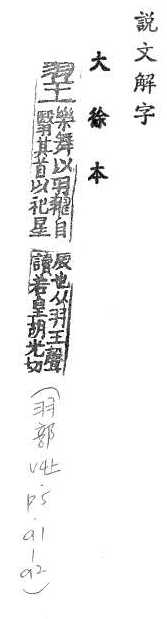 說文解字
大徐本
䍿
樂舞以羽𦒎自
翳其首以祀星
辰也从羽王聲
讀若皇胡光切
(羽部 V4上.p5.a1-a2)